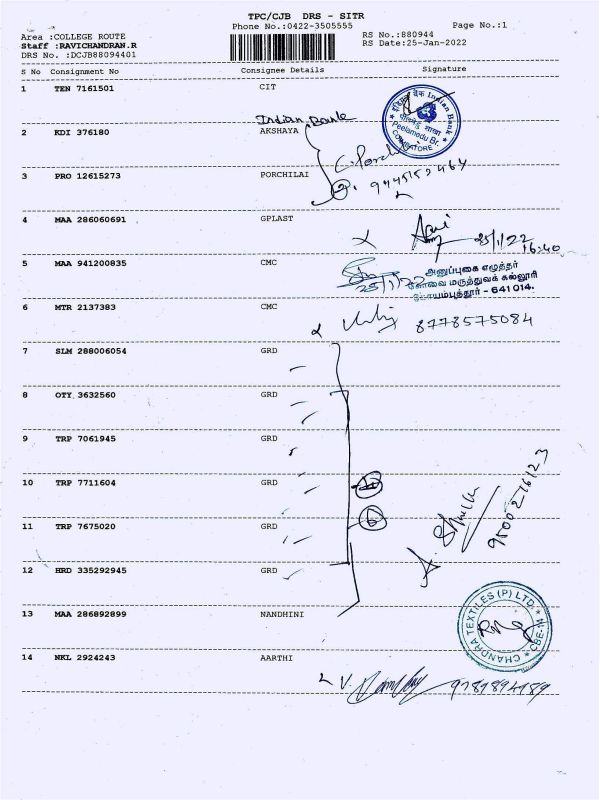 TPC/CJB DRS - SITR
Phone No.:0422-3505555 Page No.:1
Area :COLLEGE ROUTE RS No.:880944
Staff :RAVICHANDRAN.R RS Date:25-Jan-2022
DRS No. :DCJB88094401
S No Consignment No Consignee Details Signature
1 TEN 7161501 CIT
Indian Bank
इंडियन बैंक Indian Bank
पीलमेडु शाखा
Peelamedu Br.
COIMBATORE
2 KDI 376180 AKSHAYA
C. Porchilai
3 PRO 12615273 PORCHILAI
4 MAA 286060691 GPLAST
25/1/22
16:40
5 MAA 941200835 CMC
அனுப்புகை எழுத்தர்
கோவை மருத்துவக் கல்லூரி
கோயம்புத்தூர் - 641 014.
25/1/22
6 MTR 2137383 CMC
8778575084
7 SLM 288006054 GRD
8 OTY 3632560 GRD
9 TRP 7061945 GRD
10 TRP 7711604 GRD
11 TRP 7675020 GRD
6
9500276123
12 HRD 335292945 GRD
13 MAA 286892899 NANDHINI
CHANDRA TEXTILES (P) LTD. CBE-14
14 NKL 2924243 AARTHI